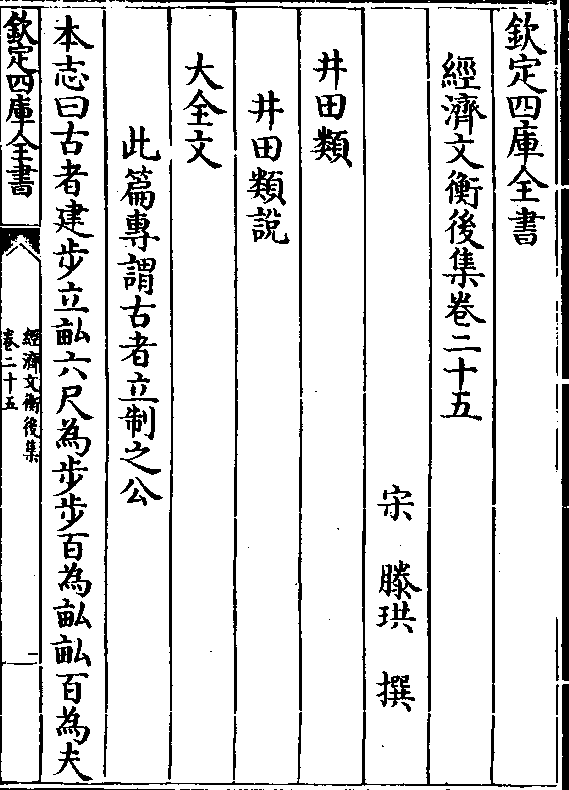 欽定四庫全書
經濟文衡後集卷二十五
宋 滕珙 撰
井田類
井田類說
大全文
此篇專謂古者立制之公
本志曰古者建步立畝六尺為步步百為畝畝百為夫
欽定四庫全書
經濟文衡後集
卷二十五
一